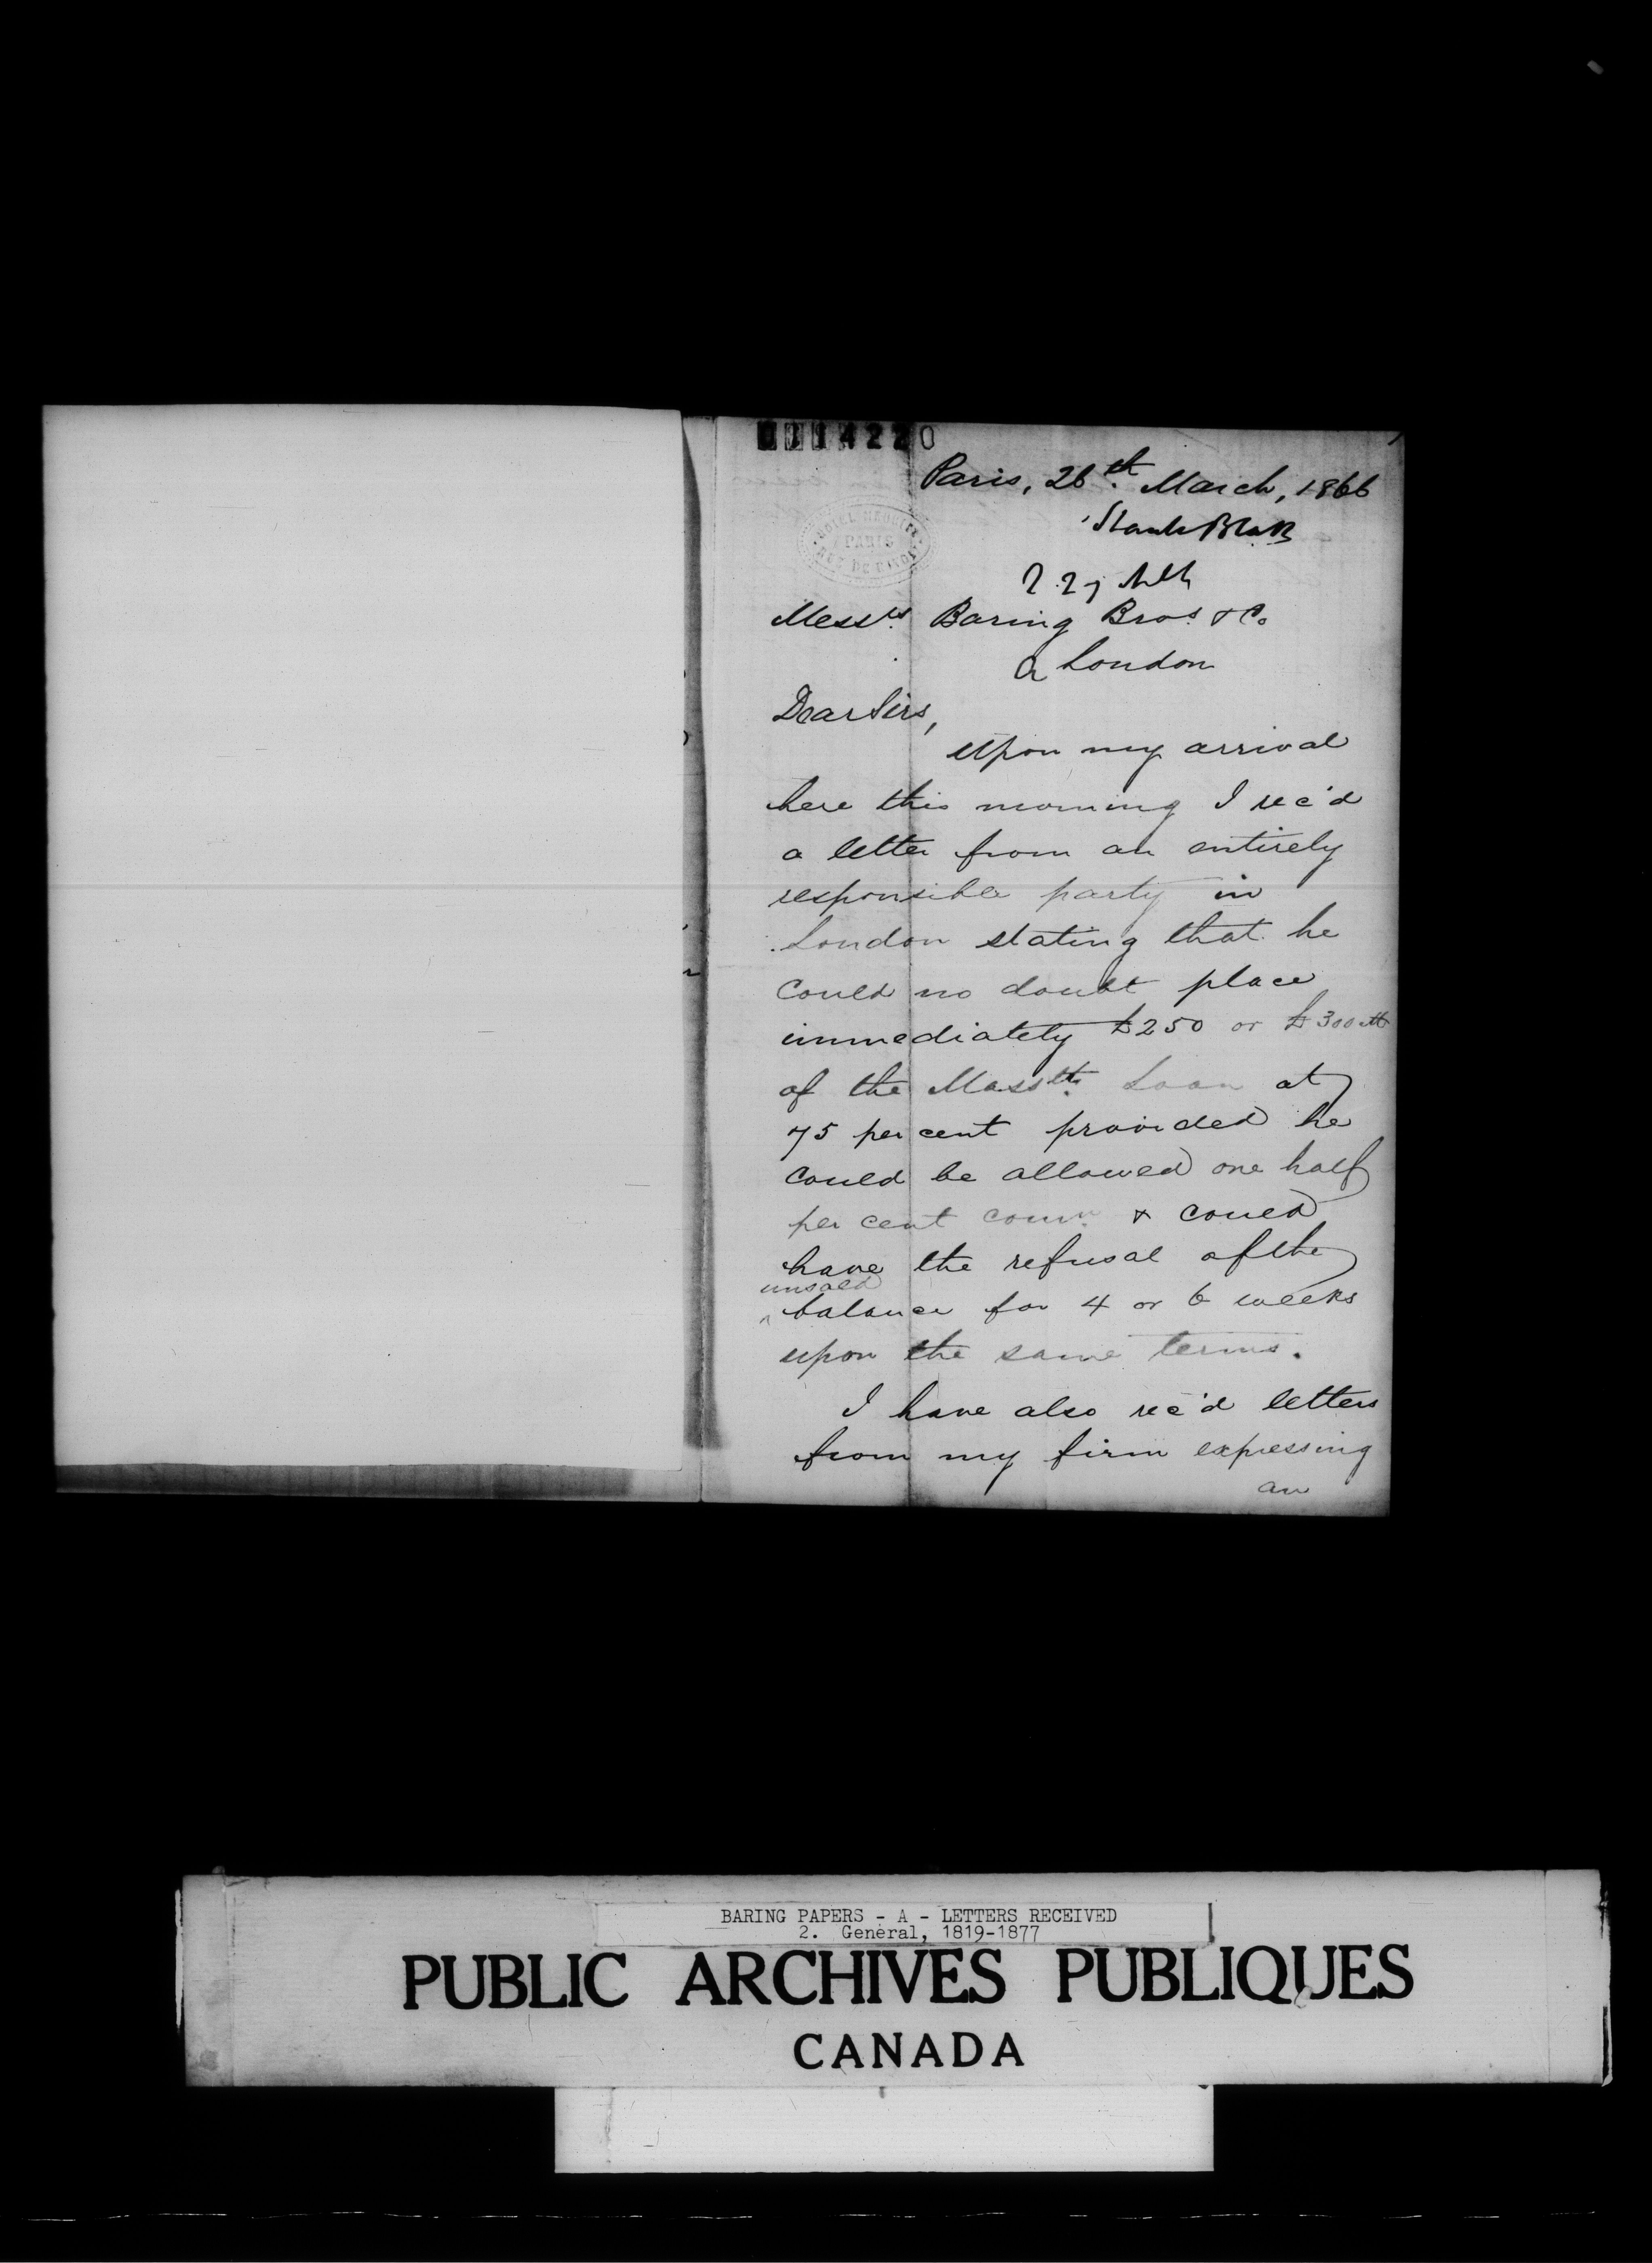 0114220
Paris, 26th. March, 1866
PARIS
Messrs. Baring Bros. & Co
London
Dear Sirs,
Upon my arrival
here this morning I rec'd
a letter from an entirely
responsible party in
London stating that he
could no doubt place
immediately £250 or £300 m
of the Masstts. Loan at
75 per cent provided he
could be allowed one half
per cent comn. & could
have the refusal of the
unsold
^ balance for 4 or 6 weeks
upon the same terms.
I have also rec'd letters
from my firm expressing
an
BARING PAPERS - A - LETTERS RECEIVED
2. General, 1819-1877
PUBLIC ARCHIVES PUBLIQUES
CANADA